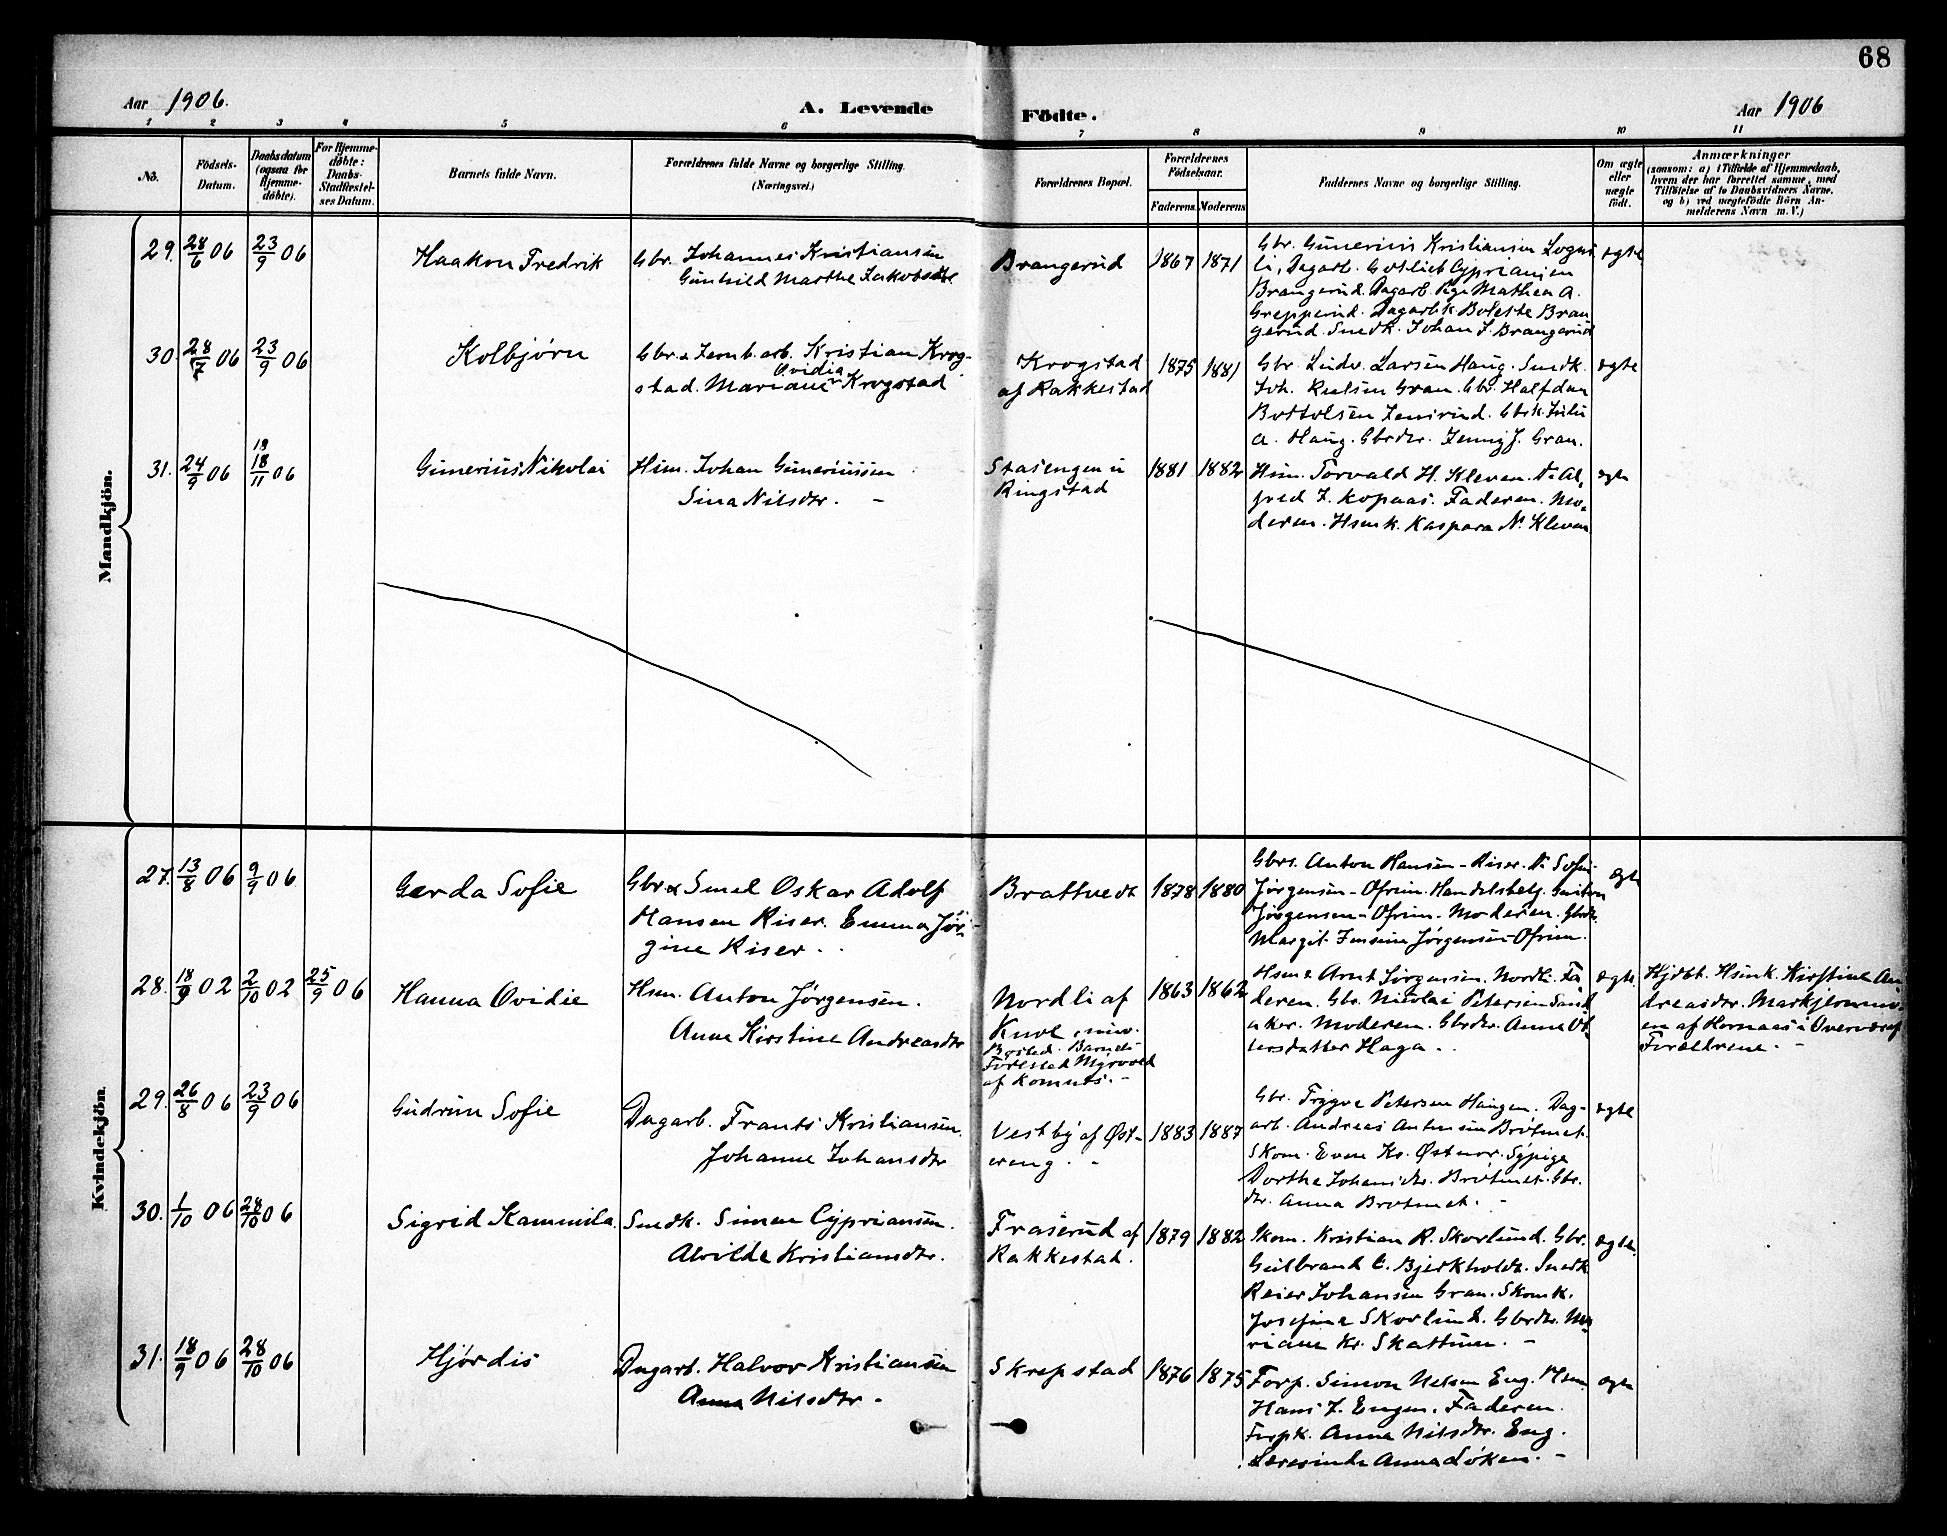 68
Aar 1906.
A. Levende
Födte.
Aar 1906
1 2 3 4 5 6 7 8 9 10 11
No.
Födsels-
Datum.
Daabsdatum
(ogsaa for
Hjemme-
döbte).
For Hjemme-
döbte:
Daabs-
Stadfæstel-
ses Datum.
Barnets fulde Navn.
Forældrenes fulde Navne og borgerlige Stilling.
(Næringsvei.)
Forældrenes Bopæl.
Forældrenes
Födselsaar.
Faderens. Moderens.
Faddernes Navne og borgerlige Stilling.
Om ægte
eller
uægte
födt.
Anmærkninger
(saasom: a) i Tilfælde af Hjemmedaab,
hvem der har forrettet samme, med
Tilföielse af to Daabsvidners Navne.
og b) ved uægtefödte Börn An-
melderens Navn m. V.)
Mandkjön.
29. 28/6 06 23/9 06
Haakon Fredrik
Gbr. Johannes Kristiansen
Gunhild Marthe Jakobsdtr.
Brangerud
1867 1871
Gbr. Gunerius Kristiansen
li, Dagarb. Gotlieb Cypriansen
Brangerud. Dagarb. Pige Mathea A.
Grepperud. Dagarbk Bolette Bran
gerud. Smedk. Johan J. Brangerud
ægte
30. 28/7 06 23/9 06
Kolbjørn
Gbr. & Jernb.arb. Kristian Krog-
stad. Mariane Ovidia Krogstad
Krogstad
af Rakkestad
1875 1881
Gbr Ludv. Larsen Haug. Smedk.
Joh. Gran. Gbr. Halfdan
Bottolsen Gbrk. Julie
A. Haug. Gbrdtr. Jenny J. Gran.
ægte
31. 24/9 06 18/11 06
Gunerius Nikolai
Hsm. Johan Guneriussen
Sina Nilsdtr. -
Stasengen u
Ringstad
1881 1882
Hsm. Torvald H. Kleven. N. Al,
fred J. Kopaas. Faderen. Mo-
deren. Hsmk. Kaspara N. Kleven
ægte
Kvindekjön.
27. 13/8 06 9/9 06
Gerda Sofie
Gbr & Smed Oskar Adolf
Hansen Riser. Emma Jør-
gine Riser.
Brattvedt
1878 1880
Gbrs. Anton Hansen-Riser. N. Sofus
Jørgensen-Ofrim. Handelsbetj. Gustav
Jørgensen-Ofrim. Moderen. Gbrdtr.
Margit Jensine Jørgensen-Ofrim.
ægte
28. 18/9 02 2/10 02 25/9 06
Hanna Ovidie
Hsm. Anton Jørgensen.
Anne Kirstine Andreasdtr
Nordli af
Knol, nuv.
Bosted. Barnets
Fødested Myrvold
af Komnes. -
1863 1862
Hsm & Arnt Jørgensen. Nordli. Fa
deren. Gbr. Nicolai Petersen Sand
aker. Moderen. Gbrdtr. Anna Ot
tersdatter Haga.
ægte.
Hjdbt. Hsmk. Kirstine An
dreasdtr.
en af Hornaas i Overværelse
Forældrene. -
29. 26/8 06 23/9 06
Gudrun Sofie
Dagarb. Frants Kristiansen.
Johanne Johansdtr
Vestby af Øst-
reng. -
1883 1887
Gbr. Trygve Petersen Haugen. Dag-
arb. Andreas Antonsen Brøtmet.
Skom. Even Kr. Østnor. Sypige
Dorthe Johansdtr. Brøtmet. Gbr.
dtr. Anna Brøtmet. -
ægte
30. 1/10 06 28/10 06
Sigrid Kammila
Smdk. Simen Cypriansen.
Alvilde Kristiansdtr.
Fraserud af
Rakkestad.
1879 1882
Skom. Kristian R. Skorlund. Gbr.
Gulbrand C. Bjerkholdt. Smedk
Reier Johansen Gran. Skomk.
Josefine Skorlund. Gbrdtr. Ma
riane Kr. Skattum. -
ægte.
31. 18/9 06 28/10 06
Hjørdis
Dagarb. Halvor Kristiansen
Anna Nilsdtr -
Skrepstad
1876 1875
Forp. Simon Nelsen Eng. Hsm
Hans J. Engen. Faderen.
Forpk. Anna Nilsdtr. Eng.
Lærerinde Anna Løken. -
ægte